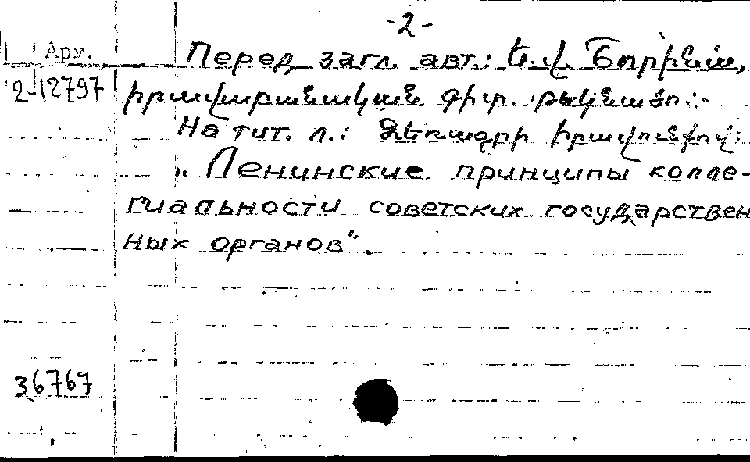 -2-
Арм.
Перед загл. авт.: Ե. Վ. Շորինա,
2-12797 իրավաբանական գիտ. թեկնածու.
На тит. л.: Ձեռագրի իրավունքով:
„Ленинские принципы колле-
гиальности советских государствен
ных органов".
36767